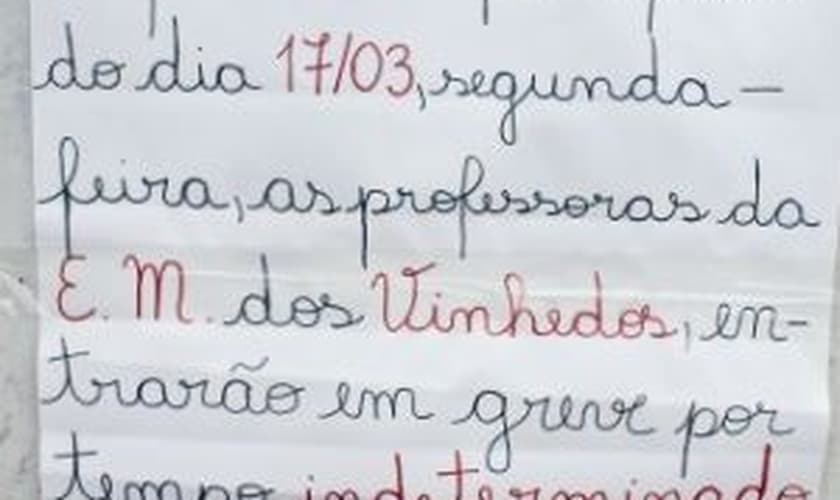 do dia 17/03, segunda-
feira, as professoras da
E. M. dos Vinhedos, en-
trarão em greve por
tempo indeterminado